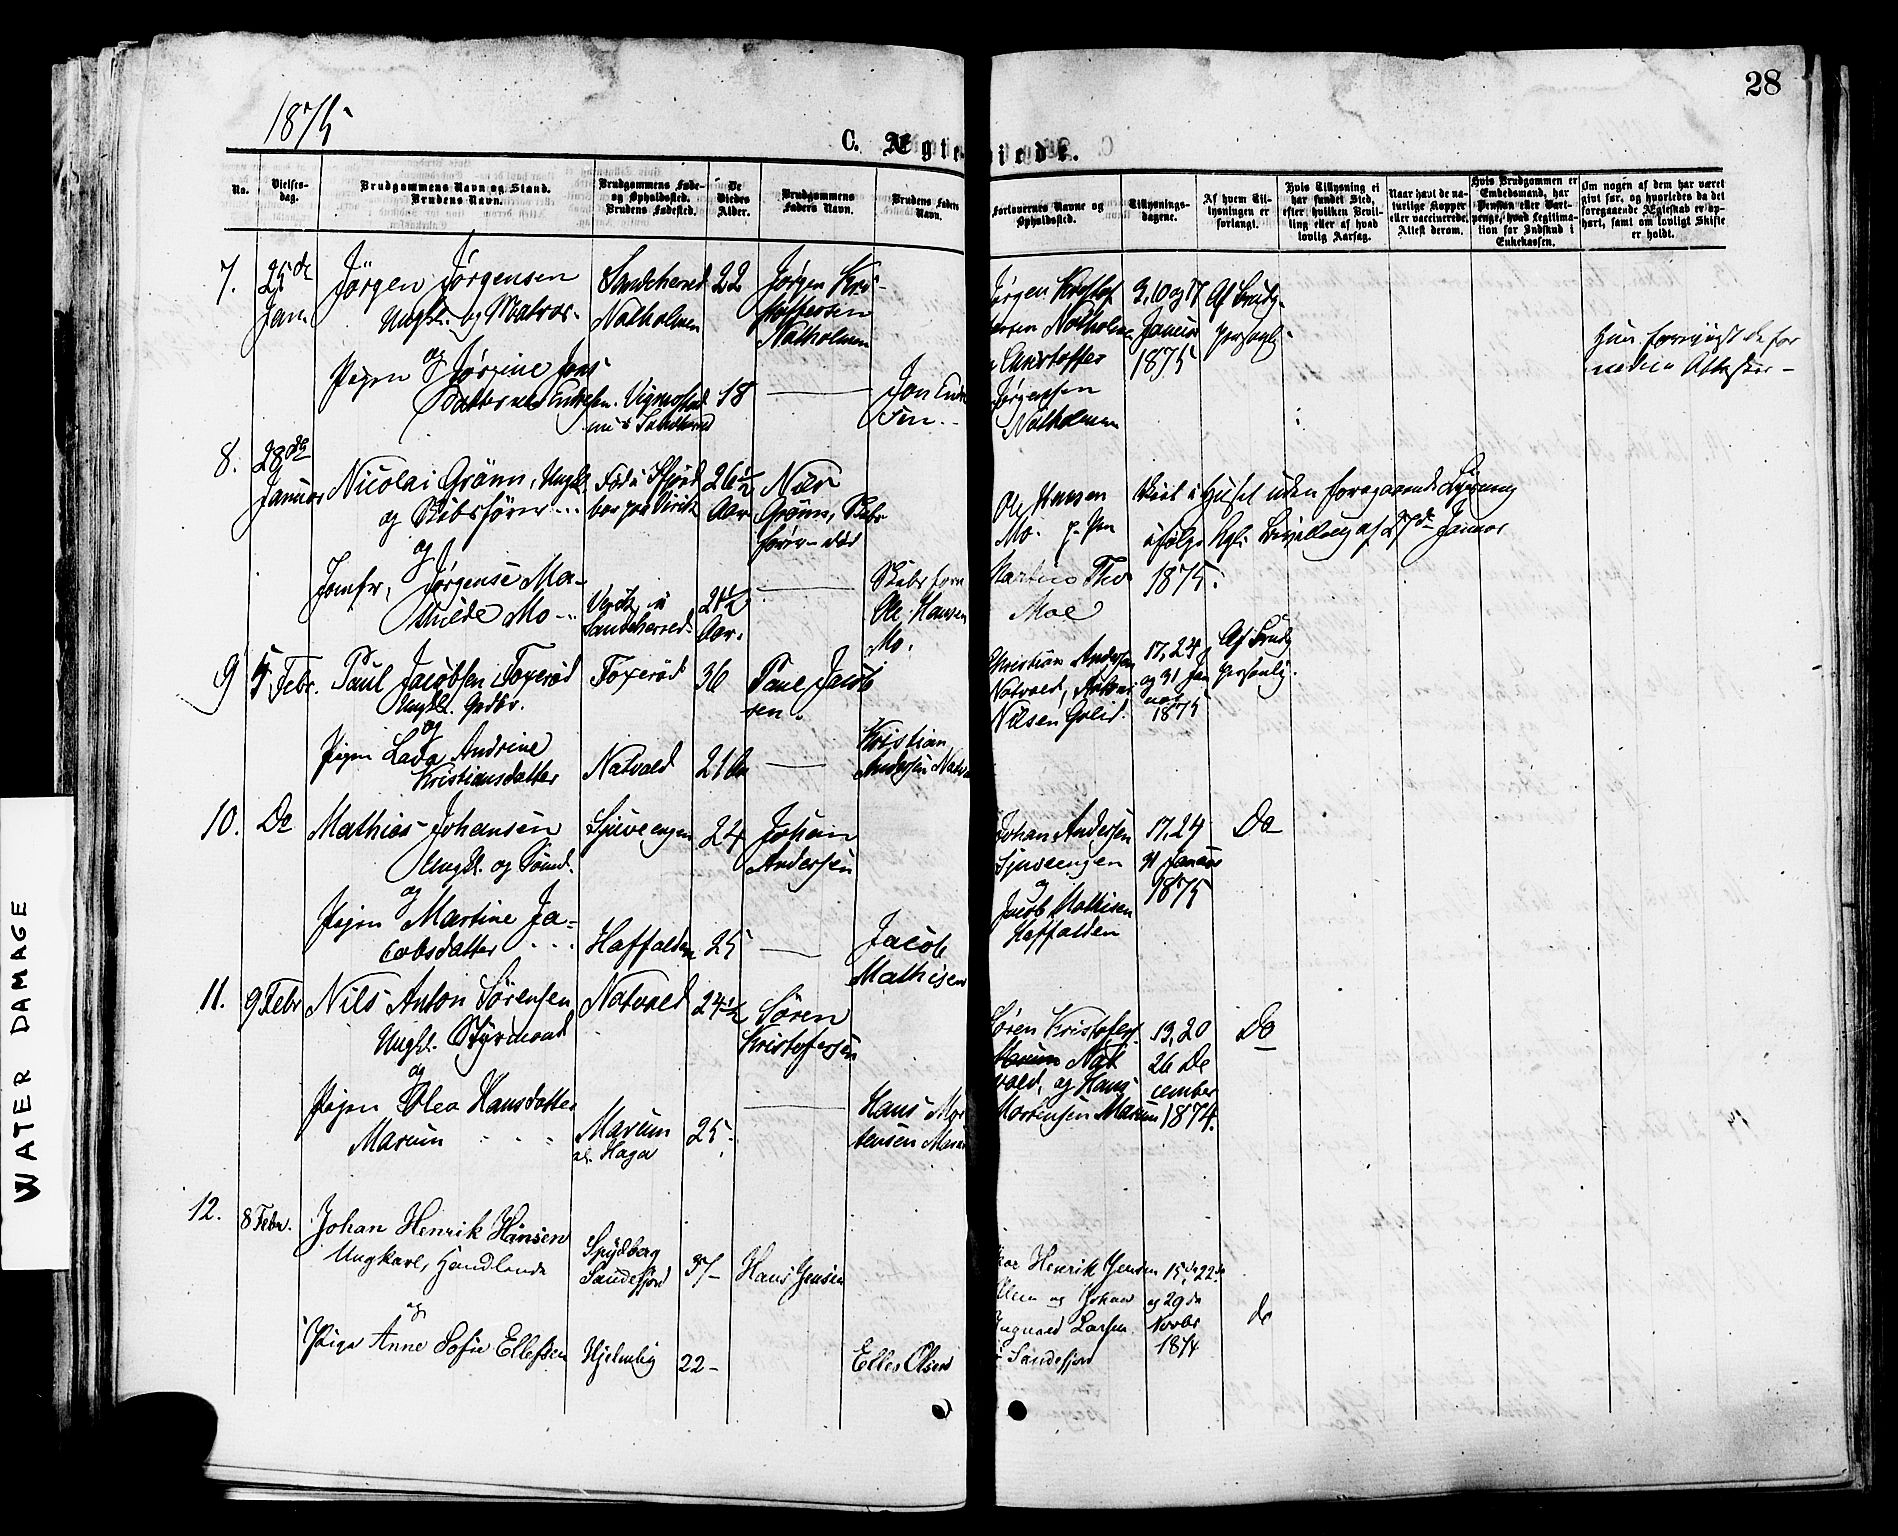 28
1875
C. Ægteviede.
No.
Vielses-
dag.
Brudgommens Navn og Stand.
Brudens Navn.
Brudgommens Føde-
og Opholdssted.
Brudens Fødested.
De
Viedes
Alder.
Brudgommens
Faders Navn.
Brudens Faders
Navn.
Forlovernes Navne og
Opholdssted.
Tillysnings-
dagene.
Af hvem Til-
lysningen er
forlangt.
Hvis Tillysning ei
har fundet Sted,
efter hvilken Bevil-
ling eller af hvad
lovlig Aarsag.
Naar havt de na-
turlige Kopper
eller vaccinerede.
Attest derom.
Hvis Brudgommen er
Embedsmand, har
Pension eller Vart-
penge, hvad Legitima-
tion for Indskud i
Enkekassen.
Om nogen af dem har været
givt før, og hvorledes da det
foregaaende Ægteskab er op-
hørt, samt om lovligt Skifte
er holdt.
7.
25 de
Jan.
Jörgen Jørgensen
Ungk. og Matros.
og
Pigen Jørgine Jons
Datter
Sandeherred
Natholmen
22
18
Jørgen Kri-
stoffersen
Natholmen
Jørgen Kristof
fersen Natholmen
Christoffer
Jørgensen
Natholmen
3, 10 og 17
Januar
1875
Af Brudg.
personl.
8.
28 de
Januar
Nicolai Grönn, Ungk.
og Skibsfører
og
Jomfr. Jørgense Ma-
thilde Mo
Sandeherred.
26 1/2
Aar
21 1/2
Aar.
Nils
Grönn, Skibs
fører
Skibsfører
Ole Hansen
Mo.
Ole Hansen
Mo.
Martin Tho
Moe
Viet i Huset uden foregaaende Lysning
ifølge Kgl. Bevilling af 27 de Januar
1875.
9
5 Febr.
Paul Jacobsen Foxerød
Ungk. Grdbr.
og
Pigen Lava Andrine
Kristiansdatter
Foxerød
Natvald
36
21
Paul Jacob
sen.
Kristian
Andersen Natva
Christian Andersen
Natvald,
Nilsen
17, 24
og 31 Ja
nuar
1875
Af Brudg
personlig.
10.
Do
Mathias Johansen
Ungk. og Sømd.
og
Pigen Martine Ja-
cobsdatter
Sjuveengen
Haffalden
24
25
Johan
Andersen
Jacob
Mathisen
Johan Andersen
Sjuveengen
og
Jacob Mathisen
Haffalden
17, 24
31 Januar
1875
Do
11.
9 Febr
Nils Anton Sörensen
Ungk. Styrmand
og
Pigen Olea Hansdatter
Marum
Natvald
Marum
al. Haga
24 1/2
25
Sören
Kristofersen
Hans Mor
tensen Marum
Sören Kristofers.
Marum Nat
vald, og Hans
Mortensen Marum
13, 20
26 De
cember
1874.
Do
12.
8 Febr.
Johan Henrik Hansen
Ungkarl, Handlende
og
Pige Anne Sofie Ellefsen
Spydberg
Sandefjord
Hjelmby
37
22
Hans Jensen
Ellef Olsen
Henrik Jensen
og Johan
Ingvald Larsen
Sandefjord
15 de, 22 de
og 29 de
Novbr
1874
do
WATER DAMAGE